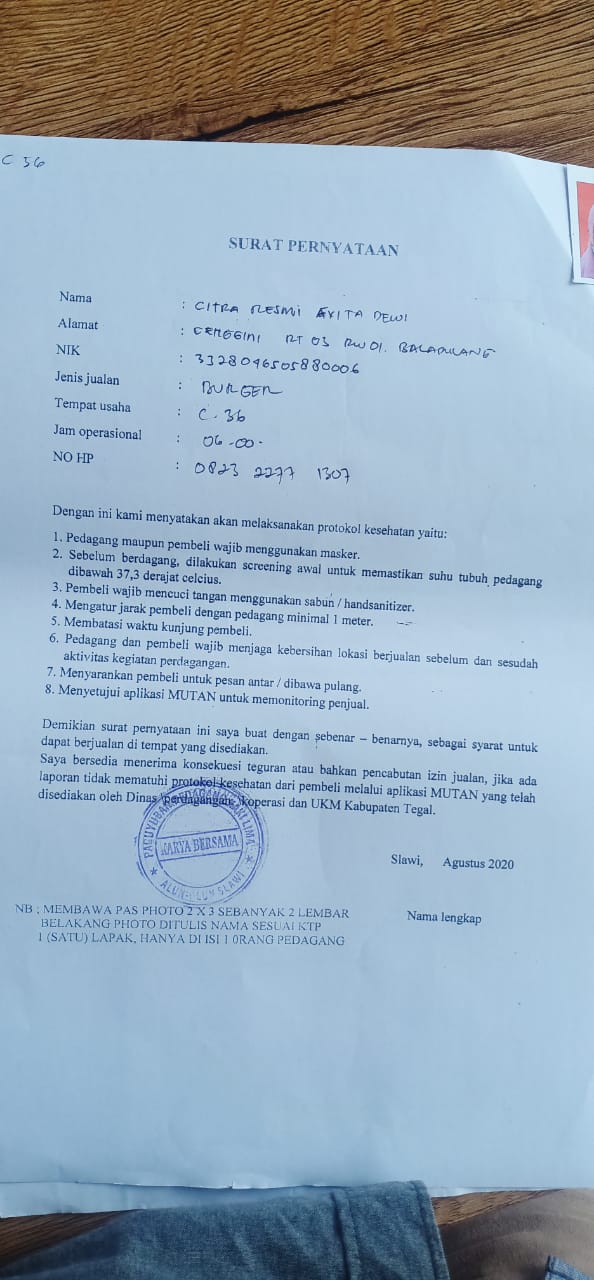 C 56
SURAT PERNYATAAN
Nama : CITRA RESMI EVITA DEWI
Alamat : CENGGINI RT 03 RW 01. BALAPULANG
NIK : 3328096505880006
Jenis jualan : BURGER
Tempat usaha : C. 36
Jam operasional : 06-00-
NO HP : 0823 2277 1307
Dengan ini kami menyatakan akan melaksanakan protokol kesehatan yaitu:
1. Pedagang maupun pembeli wajib menggunakan masker.
2. Sebelum berdagang, dilakukan screening awal untuk memastikan suhu tubuh pedagang
dibawah 37,3 derajat celcius.
3. Pembeli wajib mencuci tangan menggunakan sabun / handsanitizer.
4. Mengatur jarak pembeli dengan pedagang minimal 1 meter.
5. Membatasi waktu kunjung pembeli.
6. Pedagang dan pembeli wajib menjaga kebersihan lokasi berjualan sebelum dan sesudah
aktivitas kegiatan perdagangan.
7. Menyarankan pembeli untuk pesan antar / dibawa pulang.
8. Menyetujui aplikasi MUTAN untuk memonitoring penjual.
Demikian surat pernyataan ini saya buat dengan sebenar – benarnya, sebagai syarat untuk
dapat berjualan di tempat yang disediakan.
Saya bersedia menerima konsekuesi teguran atau bahkan pencabutan izin jualan, jika ada
laporan tidak mematuhi protokol kesehatan dari pembeli melalui aplikasi MUTAN yang telah
disediakan oleh Dinas perdagangan, koperasi dan UKM Kabupaten Tegal.
PAGUYUBAN PEDAGANG KAKI LIMA
KARYA BERSAMA
ALUN-ALUN SLAWI
Slawi, Agustus 2020
Nama lengkap
NB : MEMBAWA PAS PHOTO 2 X 3 SEBANYAK 2 LEMBAR
BELAKANG PHOTO DITULIS NAMA SESUAI KTP
1 (SATU) LAPAK, HANYA DI ISI 1 0RANG PEDAGANG